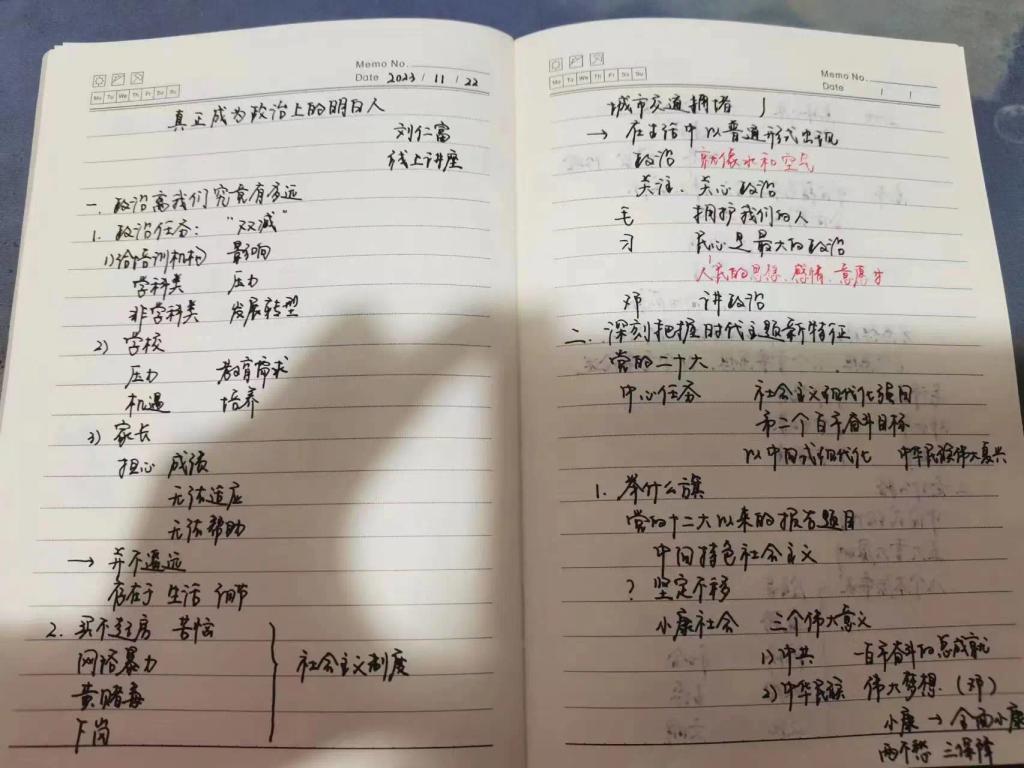 Memo No.
Date 2023 / 11 / 22
Mo Tu We Th Fr Sa Su
真正成为政治上的明白人
刘仁富
线上讲座
一、政治离我们究竟有多远
1. 政治任务："双减"
1)给培训机构 影响
学科类 压力
非学科类 发展转型
2) 学校
压力 教育需求
机遇 培养
3) 家长
担心 成绩
无法适应
无法帮助
→ 并不遥远
存在于 生活 细节
2. 买不起房 苦恼
网络暴力
黄赌毒
下岗
社会主义制度
Memo No.
Date / /
Mo Tu We Th Fr Sa Su
城市交通拥堵
→ 在生活中以普通形式出现
政治 就像水和空气
关注、关心政治
毛 拥护我们的人
习 民心是最大的政治
人民的思想、感情、意愿
邓 讲政治
二、深刻把握时代主题新特征
党的二十大
中心任务 社会主义现代化强国
第二个百年奋斗目标
以中国式现代化 中华民族伟大复兴
1. 举什么旗
党的十二大以来的报告题目
中国特色社会主义
? 坚定不移
小康社会 三个伟大意义
1)中共 一百年奋斗的总成就
2)中华民族 伟大梦想.(邓)
小康 → 全面小康
两不愁 三保障